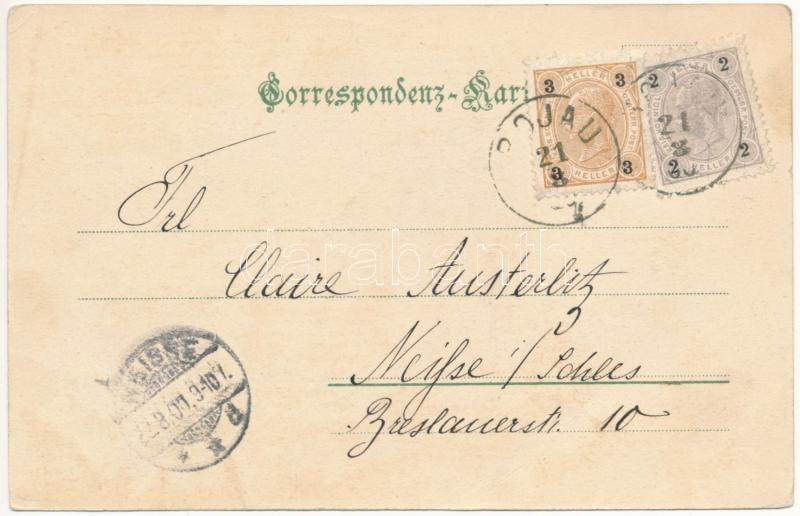 Correspondenz-Kar
3 HELLER 3
3 HELLER 3
2 2
2 HELLER 2
ROJAU
21
8
21
8
Frl
Claire Austerlitz
Neiße i/Schles
Breslauerstr. 10
NEISSE
22.8.01.9-10V.
* 2 d
darabanth